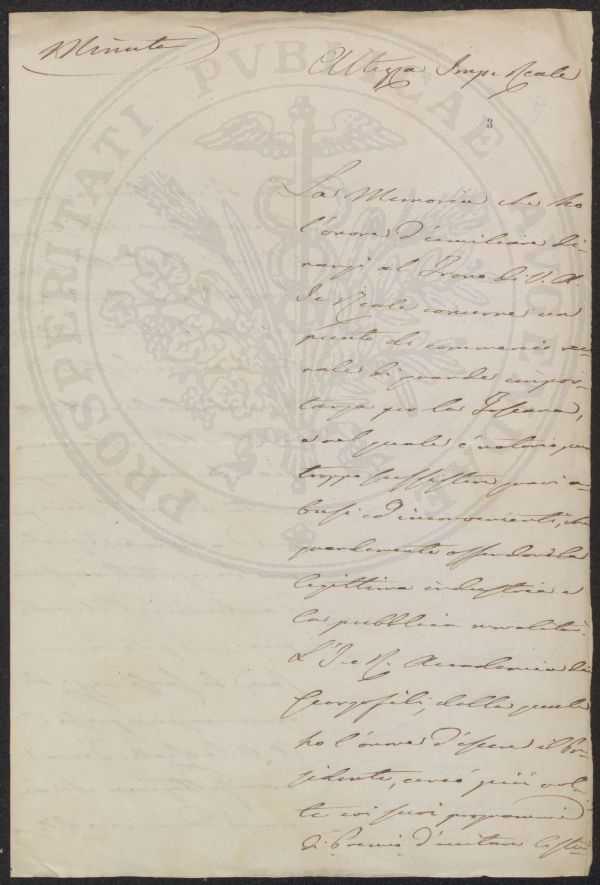 Minuta
Altezza Imp. e Reale
3
La Memoria che ho
l'onore d'umiliare di-
nanzi al Trono di V. A.
I. e Reale concerne un
punto di commercio ru-
rale di grande impor-
tanza per la Toscana,
e nel quale è notorio, pur
troppo sussister gravi a-
busi ed inconvenienti, che
grandemente offendon la
legittima industria e
la pubblica moralità.
L'I. e R. Accademia dei
Georgofili, della quale
ho l'onore d'essere il Pre-
sidente, cercò più vol-
te coi suoi programmi
di Premio d'invitare
PROSPERITATI PUBLICAE AUGENDAE